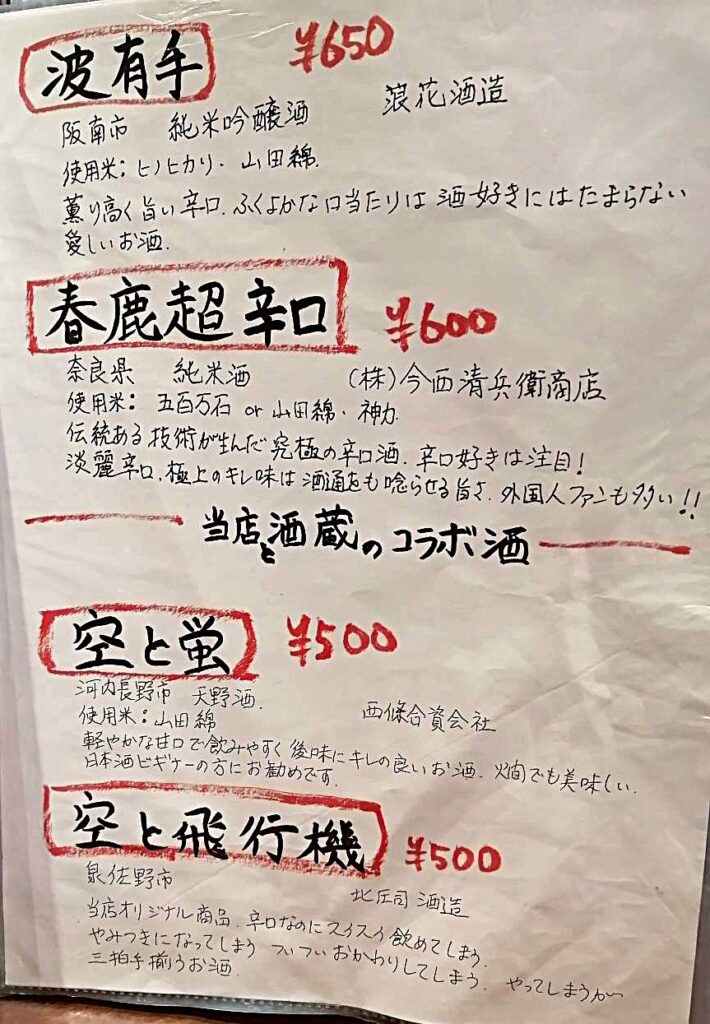 波有手 ¥650
阪南市 純米吟醸酒 浪花酒造
使用米：ヒノヒカリ・山田綿
薫り高く旨い辛口、ふくよかな口当たりは酒好きにはたまらない
愛しいお酒.
春鹿超辛口 ¥600
奈良県 純米酒 (株)今西清兵衛商店
使用米：五百万石 or 山田綿・神力
伝統ある技術が生んだ究極の辛口酒. 辛口好きは注目!
淡麗辛口、極上のキレ味は酒通をも唸らせる旨さ. 外国人ファンも多い!!
当店と酒蔵のコラボ酒
空と蛍 ¥500
河内長野市 天野酒. 西條合資会社
使用米：山田綿
軽やかな甘口で飲みやすく後味にキレの良いお酒、燗でも美味しい.
日本酒ビギナーの方にお勧めです.
空と飛行機 ¥500
泉佐野市 北庄司酒造
当店オリジナル商品. 辛口なのにスイスイ飲めてしまう.
やみつきになってしまう ついついおかわりしてしまう. やってしまうが〜
三拍手揃うお酒.